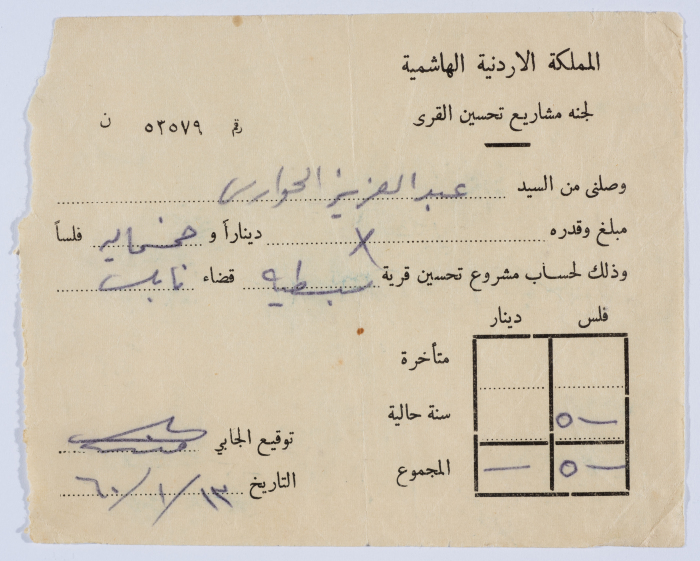 المملكة الاردنية الهاشمية
لجنه مشاريع تحسين القرى
رقم ٥٣٥٧٩ ن
وصلني من السيد عبد العزيز الحواري
مبلغ وقدره X ديناراً و خمسمايه فلساً
وذلك لحساب مشروع تحسين قرية سبسطيه قضاء نابلس
فلس دينار
متأخرة
سنة حالية ٥٠٠
المجموع ٥٠٠ —
توقيع الجابي
التاريخ ١٣/١/٦٠